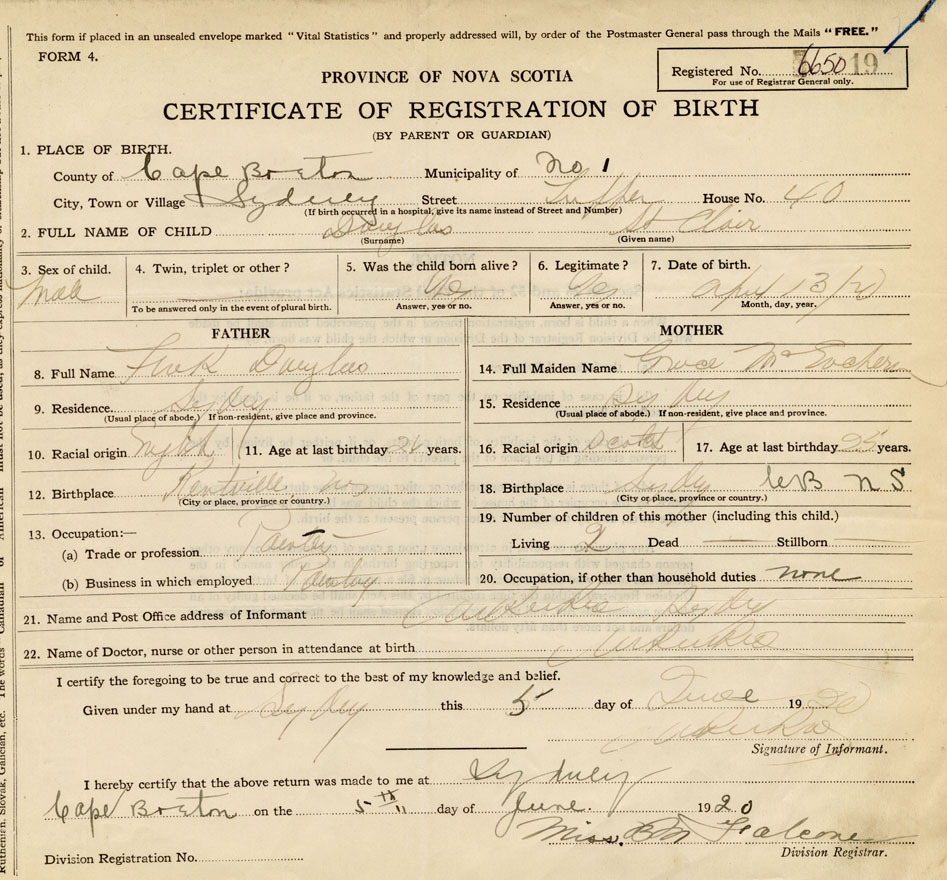 This form if placed in an unsealed envelope marked "Vital Statistics" and properly addressed will, by order of the Postmaster General pass through the Mails "FREE."
FORM 4.
Registered No. 6650 19
For use of Registrar General only.
PROVINCE OF NOVA SCOTIA
CERTIFICATE OF REGISTRATION OF BIRTH
(BY PARENT OR GUARDIAN)
1. PLACE OF BIRTH.
County of Cape Breton Municipality of No 1
City, Town or Village Sydney Street Tupper House No. 40
(If birth occurred in a hospital, give its name instead of Street and Number)
2. FULL NAME OF CHILD Douglas St Clair
(Surname) (Given name)
3. Sex of child. 4. Twin, triplet or other? 5. Was the child born alive? 6. Legitimate? 7. Date of birth.
Male Yes Yes April 13/20
To be answered only in the event of plural birth. Answer, yes or no. Answer, yes or no. Month, day, year.
FATHER MOTHER
8. Full Name Douglas 14. Full Maiden Name Grace
9. Residence. Sydney 15. Residence Sydney
(Usual place of abode.) If non-resident, give place and province. (Usual place of abode.) If non-resident, give place and province.
10. Racial origin English 11. Age at last birthday years. 16. Racial origin Scotch 17. Age at last birthday 25 years.
12. Birthplace Kentville NS 18. Birthplace Sydney CB NS
(City or place, province or country.) (City or place, province or country.)
13. Occupation:— 19. Number of children of this mother (including this child.)
(a) Trade or profession Painter Living 2 Dead Stillborn
(b) Business in which employed Painting 20. Occupation, if other than household duties none
21. Name and Post Office address of Informant Sydney
22. Name of Doctor, nurse or other person in attendance at birth
I certify the foregoing to be true and correct to the best of my knowledge and belief.
Given under my hand at Sydney this 5 day of June 1920
Signature of Informant.
I hereby certify that the above return was made to me at Sydney
Cape Breton on the 5th day of June. 1920
Miss. Falconer
Division Registrar.
Division Registration No.